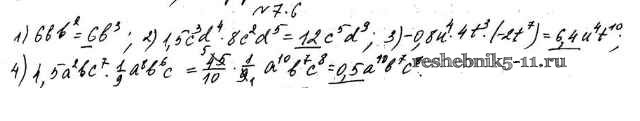 №7.6
1) 6bb² = 6b³; 2) 1,5c³d⁴·8c²d⁵ = 12c⁵d⁹; 3) -0,8u⁴·4t³·(-2t⁷) = 6,4u⁴t¹⁰;
4) 4,5a²bc⁷·1/9a⁸b⁶c = 45/10·1/9 a¹⁰b⁷c⁸ = 0,5a¹⁰b⁷c⁸.
reshebnik5-11.ru